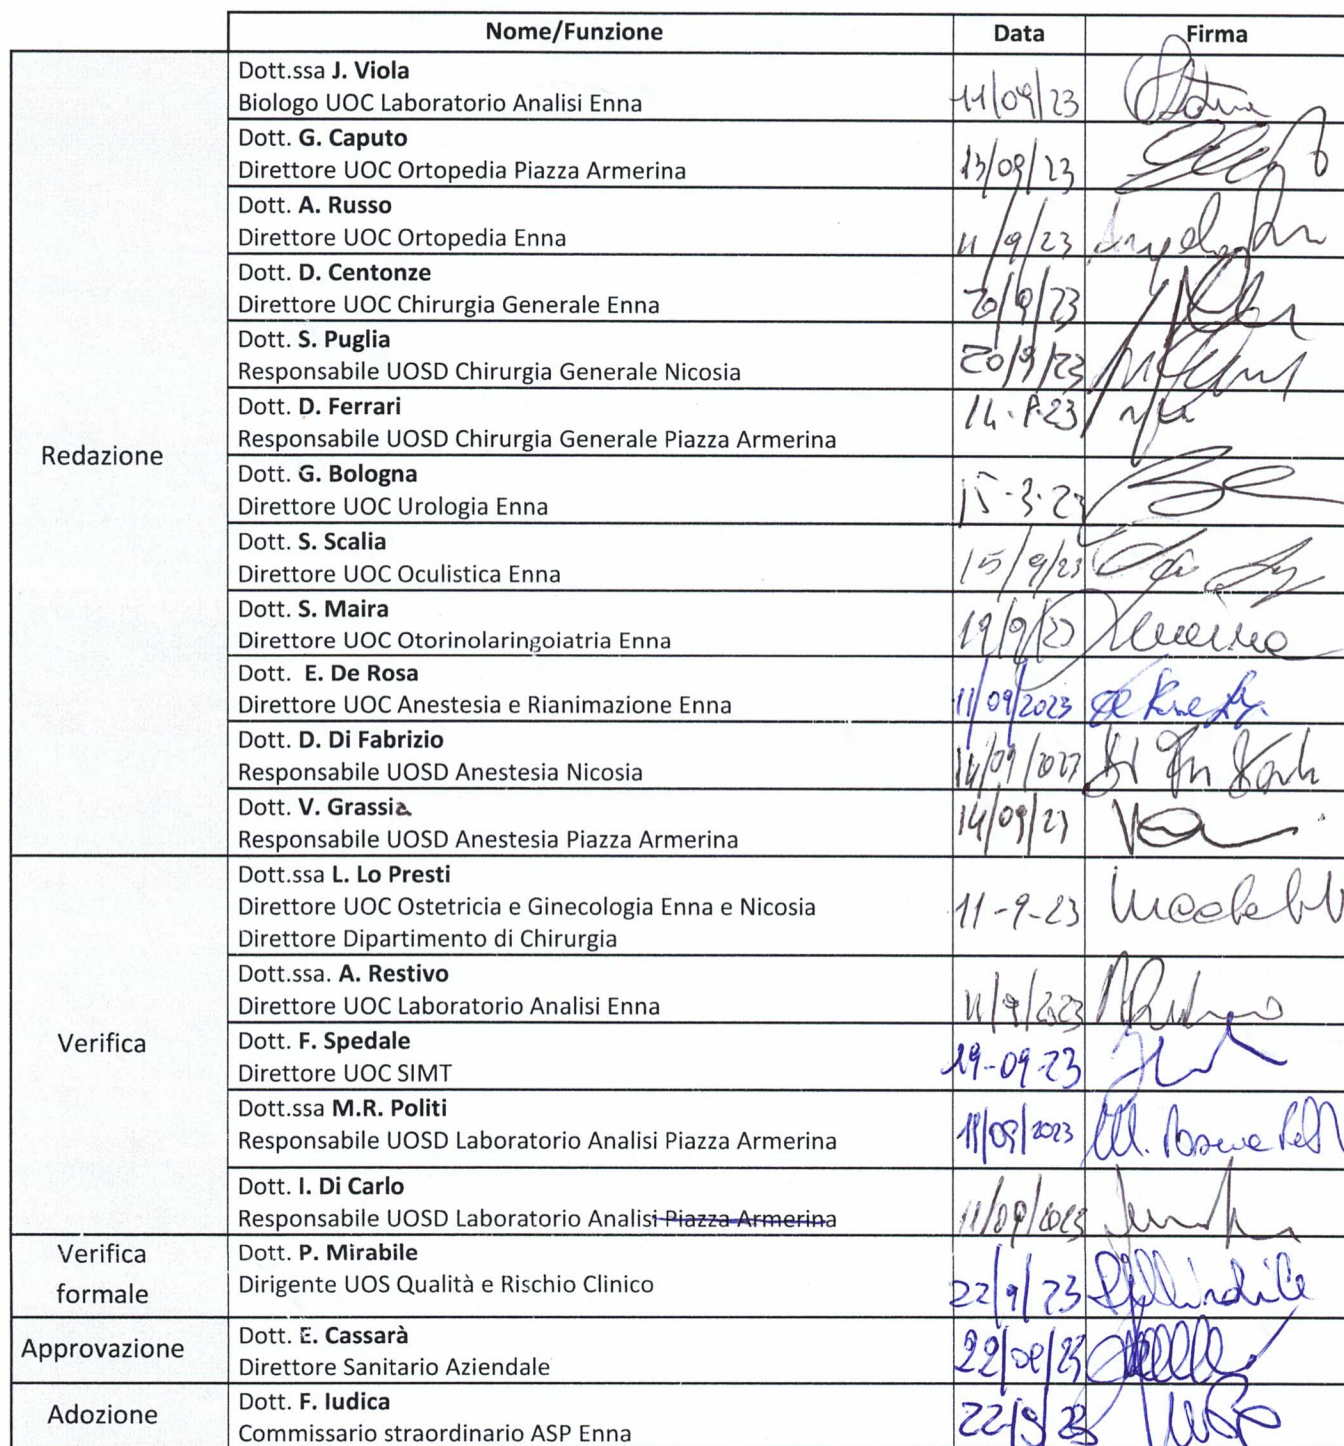 Nome/Funzione Data Firma
Redazione
Dott.ssa J. Viola
Biologo UOC Laboratorio Analisi Enna
11/09/23
Dott. G. Caputo
Direttore UOC Ortopedia Piazza Armerina
13/09/23
Dott. A. Russo
Direttore UOC Ortopedia Enna
11/9/23
Dott. D. Centonze
Direttore UOC Chirurgia Generale Enna
20/9/23
Dott. S. Puglia
Responsabile UOSD Chirurgia Generale Nicosia
20/9/23
Dott. D. Ferrari
Responsabile UOSD Chirurgia Generale Piazza Armerina
Dott. G. Bologna
Direttore UOC Urologia Enna
Dott. S. Scalia
Direttore UOC Oculistica Enna
15/9/23
Dott. S. Maira
Direttore UOC Otorinolaringoiatria Enna
19/9/23
Dott. E. De Rosa
Direttore UOC Anestesia e Rianimazione Enna
11/09/2023
Dott. D. Di Fabrizio
Responsabile UOSD Anestesia Nicosia
14/09/2023
Dott. V. Grassia
Responsabile UOSD Anestesia Piazza Armerina
14/09/23
Verifica
Dott.ssa L. Lo Presti
Direttore UOC Ostetricia e Ginecologia Enna e Nicosia
Direttore Dipartimento di Chirurgia
11-9-23
Dott.ssa. A. Restivo
Direttore UOC Laboratorio Analisi Enna
11/9/2023
Dott. F. Spedale
Direttore UOC SIMT
19-09-23
Dott.ssa M.R. Politi
Responsabile UOSD Laboratorio Analisi Piazza Armerina
Dott. I. Di Carlo
Responsabile UOSD Laboratorio Analisi Piazza Armerina
11/09/2023
Verifica
formale
Dott. P. Mirabile
Dirigente UOS Qualità e Rischio Clinico
22/9/23
Approvazione
Dott. E. Cassarà
Direttore Sanitario Aziendale
22/09/23
Adozione
Dott. F. Iudica
Commissario straordinario ASP Enna
22/9/23